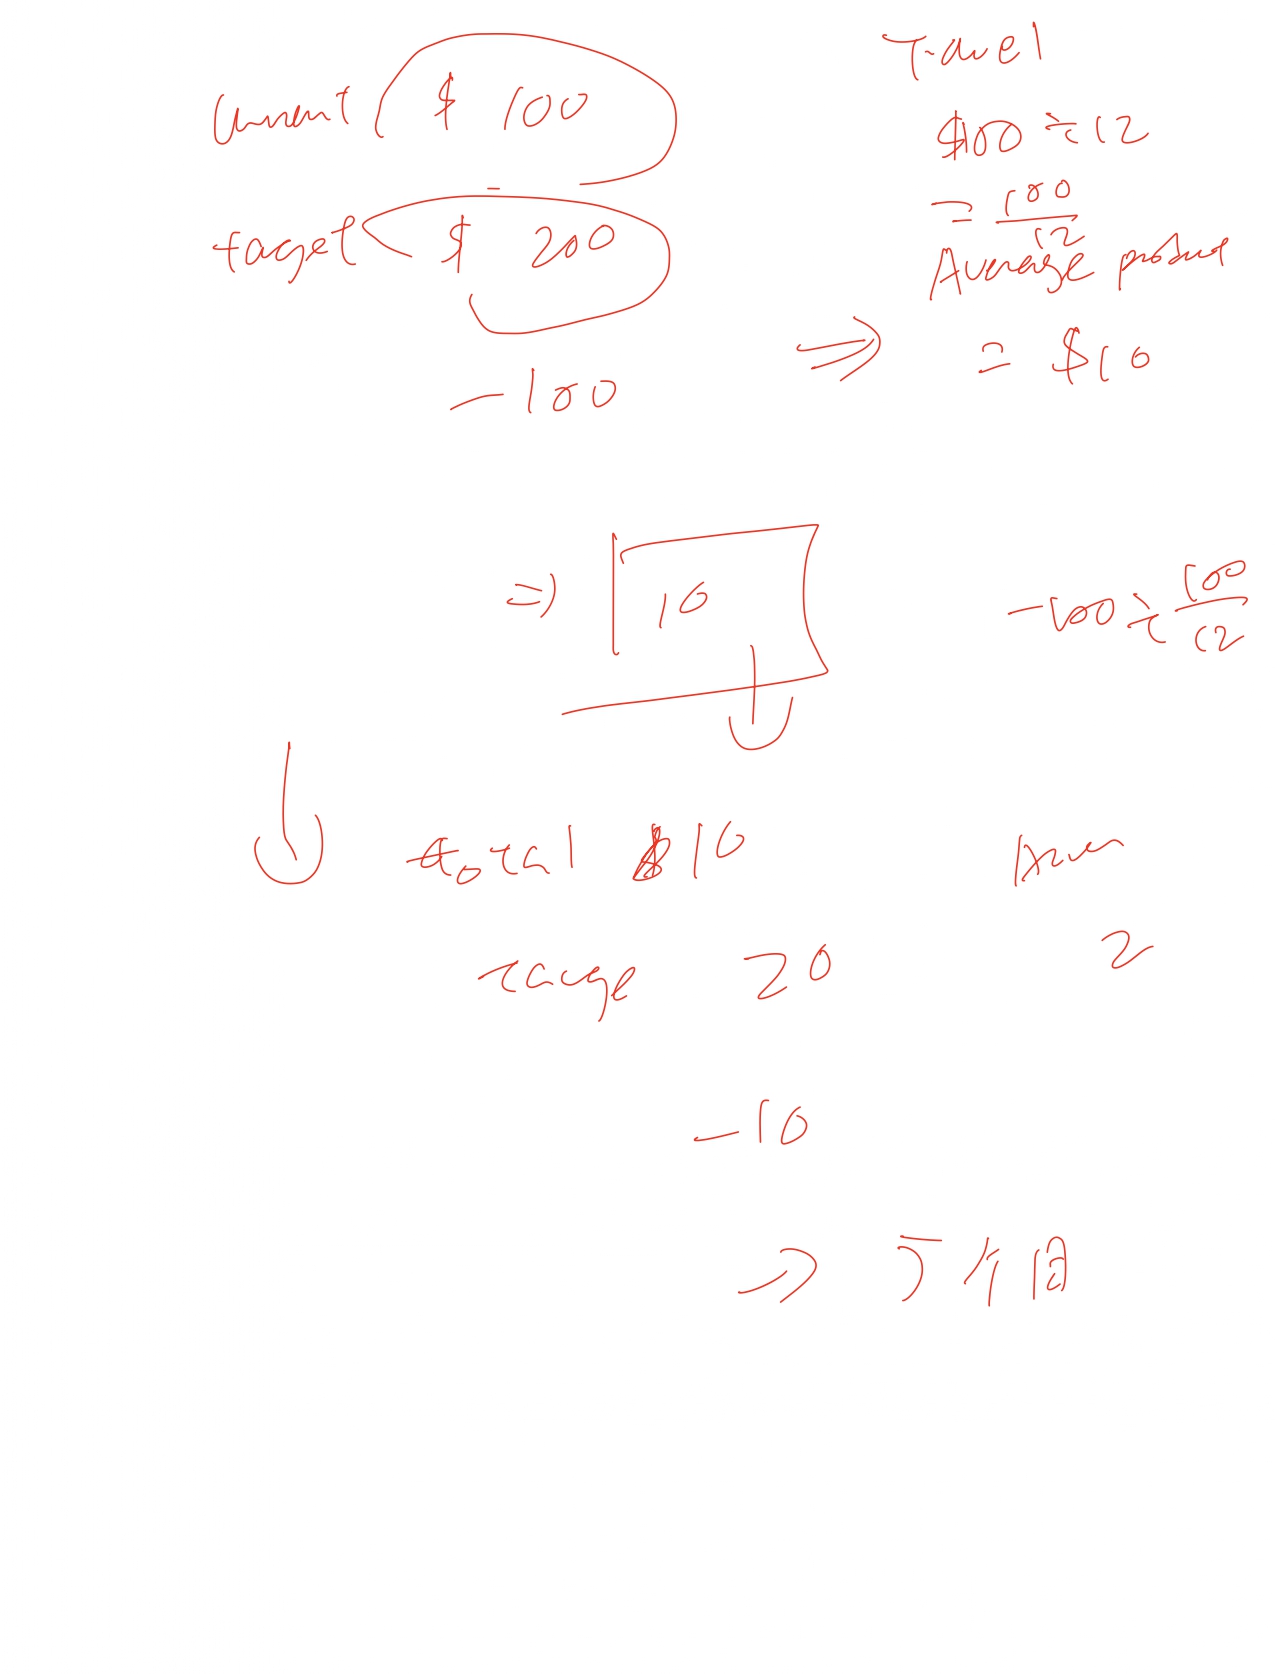 Current $ 100
-
target $ 200
-100
Travel
$100 ÷ 12
= 100/12
Average product
⇒ = $10
⇒ 10
-100 ÷ 100/12
total $10
2
20
-10
→ 5个月